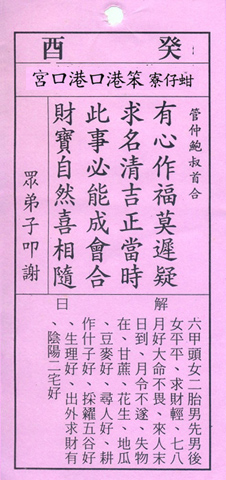 癸酉
蚶仔寮笨港口港口宮
管仲鮑叔首合
有心作福莫遲疑
求名清吉正當時
此事必能成會合
財寶自然喜相隨
眾弟子叩謝
解曰
六甲頭女二胎男先男後
女平平、求財輕、七八
月好大命不畏、來人末
日到、月令不遂、失物
在、甘蔗、花生、地瓜
、豆麥好、尋人好、耕
作什子好、採糴五谷好
、生理好、出外求財有
、陰陽二宅好